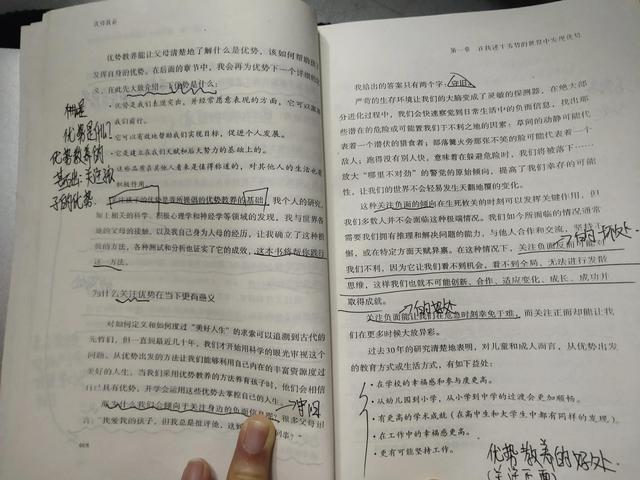 优势教养
优势教养能让父母清楚地了解什么是优势，该如何帮助孩子
发挥自身的优势。在后面的章节中，我会再为优势下一个详细的定
义，在此先大致介绍一下优势是什么：
·优势是我们表现突出，并经常愿意表现的方面，它可以
我们前行。
·它可以有效地帮助我们实现目标，促进个人发展。
·它是建立在我们天赋和后天努力的基础上的。
·这些品质在其他人看来是值得称道的，对其他人的生活也有
积极作用。
关注孩子的优势是我所提倡的优势教养的基础。我个人的研究，
加上相关的科学、积极心理学和神经学等领域的发现，我与世界各
地的父母的接触，以及我自身为人母的经历，让我确立了这种教
养的方法，各种测试和分析也证实了它的成效，这本书将帮你践行
这一方法。
为什么关注优势在当下更有意义
对如何定义和如何度过“美好人生”的求索可以追溯到古代的
先哲们，但一直到最近几十年，我们才开始用科学的眼光审视这个
问题。从优势出发的方法让我们能够利用自己内在的丰富资源度过
美好的人生。当我们采用优势教养的方法养育孩子时，他们会相信
自己具有优势，并学会运用这些优势去掌控自己的人生。
那为什么我们会倾向于关注身边的负面信息呢？很多父母
言：“我爱我的孩子，但我总是批评他，这到
008
优势是什么？
优势教养的
基础：关注孩
子的优势。
第一章 在执迷于劣势的世界中发现优势
我给出的答案只有两个字：守旧。
严苛的生存环境让我们的大脑变成了灵敏的探测器，在绝大部
分进化过程中，我们会快速察觉到日常生活中的负面信息，找出那
些潜在的危险或可能置我们于不利之地的因素：草间的动静可能代
表着一个潜伏的猎食者；部落篝火旁那张不笑的脸可能代表着一个
敌人；跑得没有别人快，意味着在躲避危险时，我们将被落下……
放大“哪里不对劲”的警觉的原始倾向，提高了我们幸存的可能
性，让我们的世界不会轻易发生天翻地覆的变化。
这种关注负面的倾向在生死攸关的时刻可以发挥关键作用，但
我们多数人并不会面临这种极端情况。我们如今所面临的情况通常
需要我们拥有推理和解决问题的能力，与他人合作和交流，坚持不
懈，或在特定方面天赋异禀。在这种情况下，关注负面反而可能对
我们不利，因为它让我们看不到机会，看不到全局、无法进行发散
思维，这样我们也就不可能创新、合作、适应变化、成长、成功并
取得成就。
关注负面能让我们在危急时刻幸免于难，而关注正面却能让我
们在更多时候大放异彩。
过去30年的研究清楚地表明，对儿童和成人而言，从优势出发
的教育方式或生活方式，有如下益处：
·在学校的幸福感和参与度更高。
·从幼儿园到小学，从小学到中学的过渡会更加顺畅。
·有更高的学术成就（在高中生和大学生中都有同样的发现）。
·在工作中的幸福感更高。
·更有可能坚持工作。
优势教养的好处